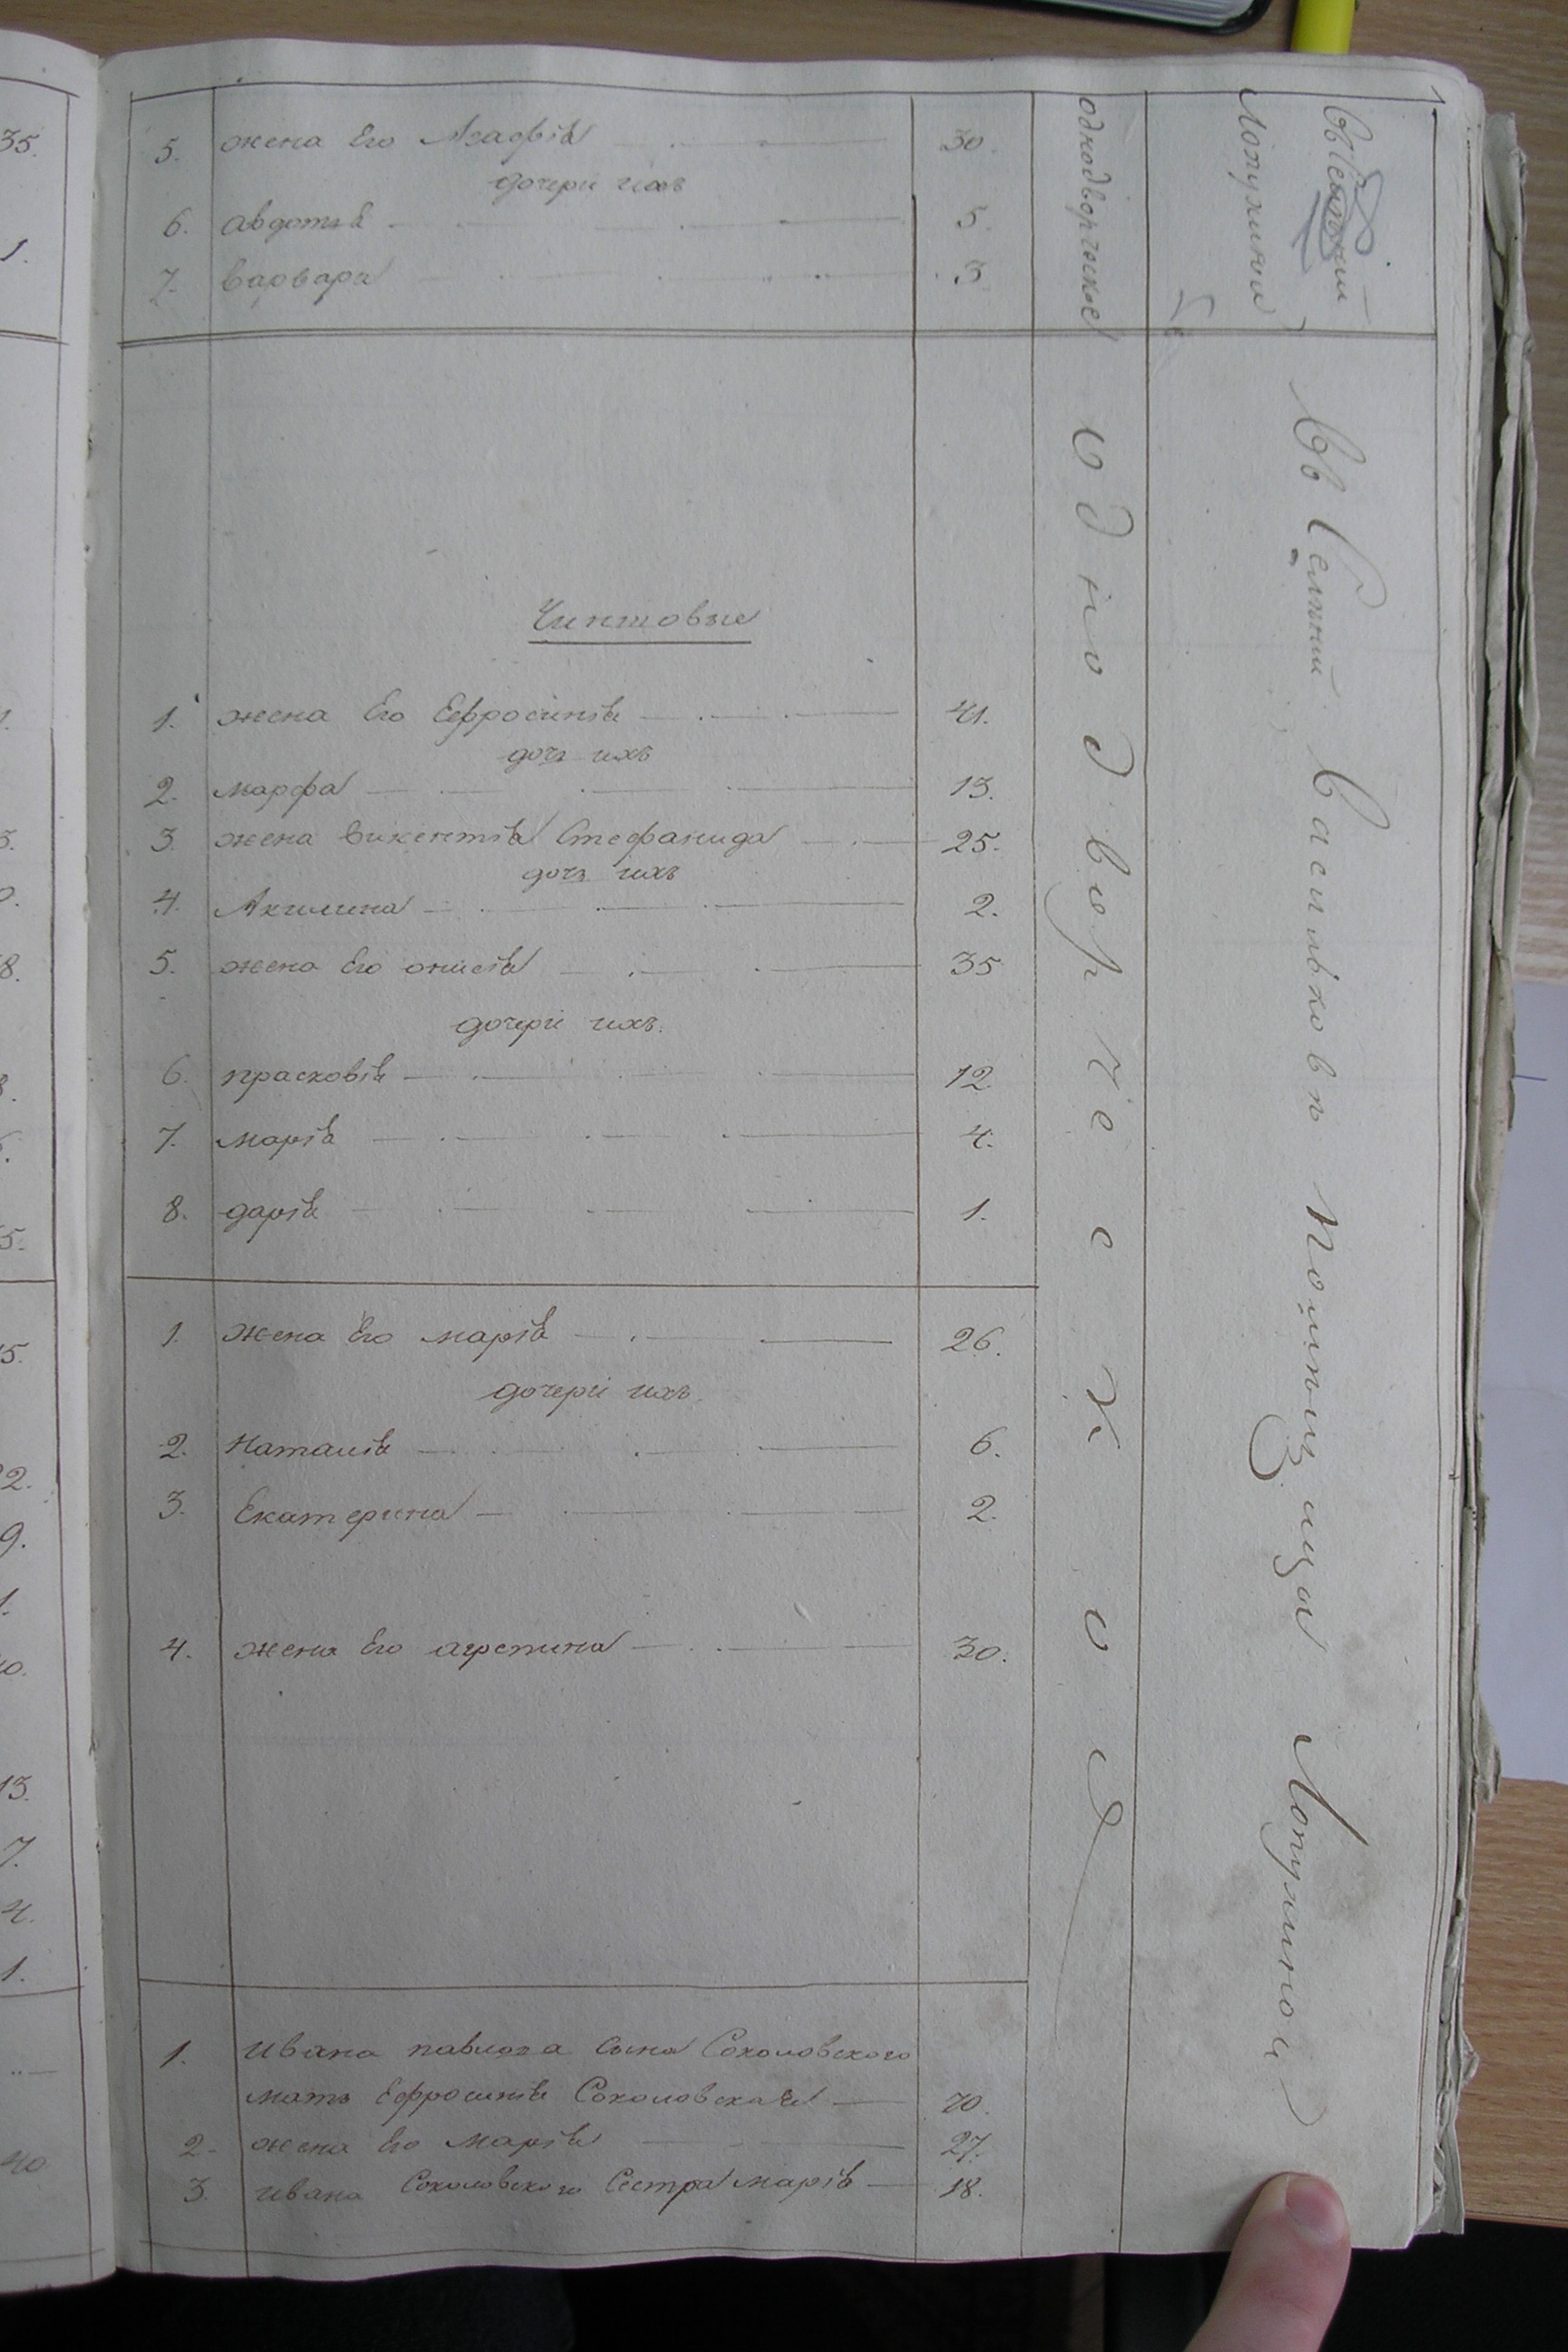 5. жена Его Агафія 30.
дочери ихъ
6. Авдотья 5.
7. Варвара 3
однодворческое
Лопухиной
Чиншовые
1. жена Его Ефросинія 41.
дочь ихъ
2. марфа 13.
3. жена викентія Стефанида 25.
дочь ихъ
4. Акилина 2.
5. жена Его онисія 35
дочери ихъ.
6. прасковія 12
7. марія 4.
8. дарія 1.
1. жена Его марія 26.
дочери ихъ.
2. Наталія 6.
3. Екатерина 2.
4. жена Его агрепина 30.
однодворческое
Въ Селѣніи Васильковѣ Помѣщица Лопухиной
1. ивана павлова сына Соколовского
мать Ефросинія Соколовская 70.
2. жена Его Марія 27.
3. ивана Соколовского Сестра марія 18.
35.
1.
8.
2.
9.
13.
7.
4.
1.
40